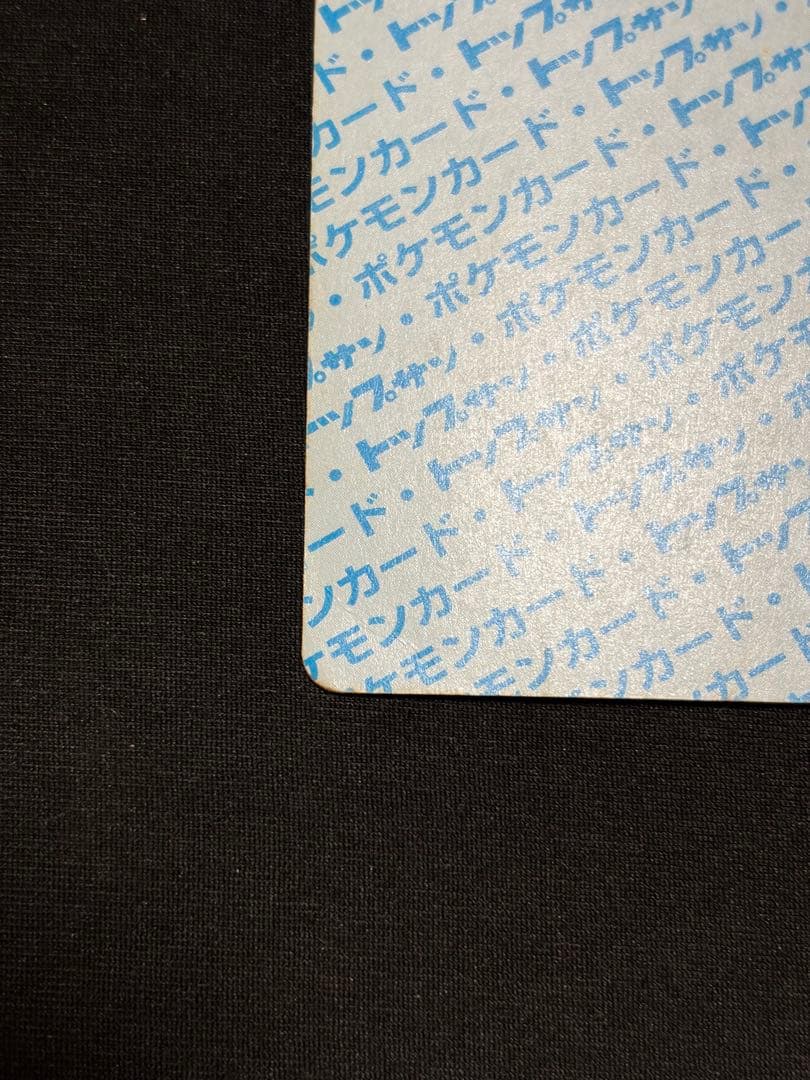 トッ
ド・トップ
カード・トップ
モンカード・トップサン
ポケモンカード・トップサン・
・ポケモンカード・トップサ
プサン・ポケモンカード・トッ
ップサン・ポケモンカード・
・トップサン・ポケモンカー
ード・トップサン・ポケモ
ンカード・トップサン・ポケ
ケモンカード・トップサン・ポ
ケモンカード・トップサン
ケモンカード・トップ
モンカード・ト
ンカード